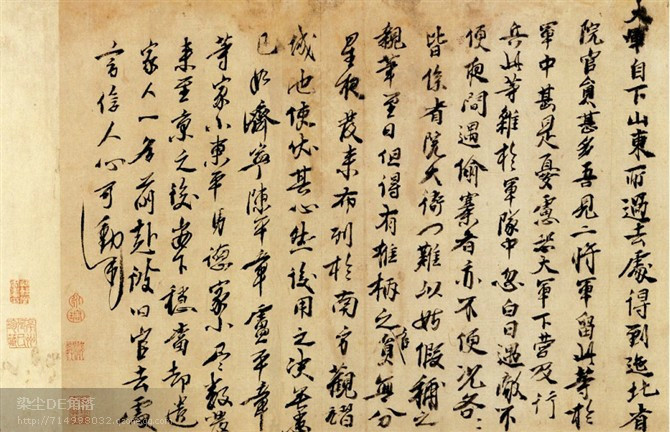 大軍自下山東所過去處得到迤北省
院官員甚多吾見二將軍留此等於
軍中甚是憂慮恐大軍下營及行
兵此等雜於軍隊中忽白日遇敵不
便夜間遇偷寨者亦不便況各〻
皆係省院大衙門難以姑假補之
親筆至日但得有權柄之官員無分
星夜發來布列於南方觀
城池使伏其心然後用之決無患
已如濟寧陳平章盧平章
等家小東平馬德家小盡數發
來至京之後安下穩當却遣
家人一名前赴彼旧官去處
言信人心可動
染尘DE角落